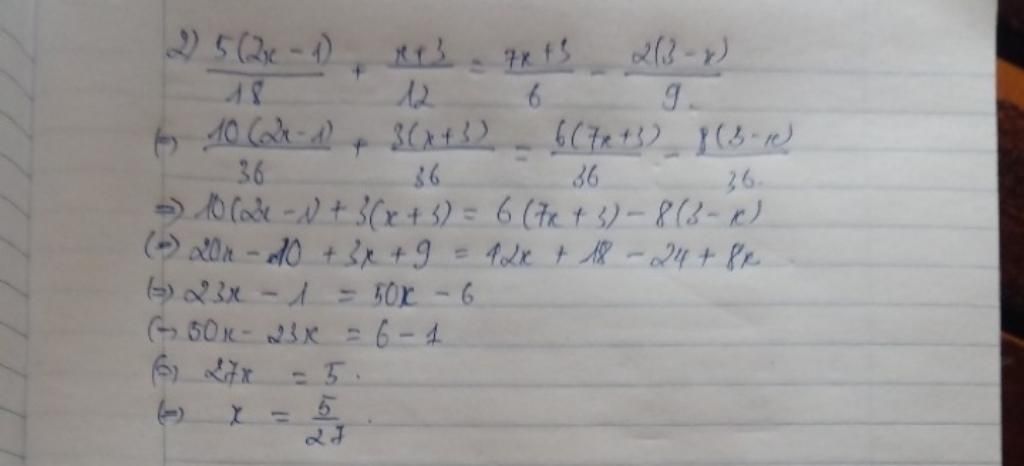 2) 5(2x - 1)/18 + x+3/12 = 7x+3/6 - 2(3-x)/9.
(=) 10(2x-1)/36 + 3(x+3)/36 = 6(7x+3)/36 - 8(3-x)/36.
=) 10(2x - 1) + 3(x+3) = 6(7x+3) - 8(3-x)
(=) 20x - 10 + 3x + 9 = 42x + 18 - 24 + 8x
(=) 23x - 1 = 50x - 6
(=) 50x - 23x = 6 - 1
(=) 27x = 5.
(=) x = 5/27.